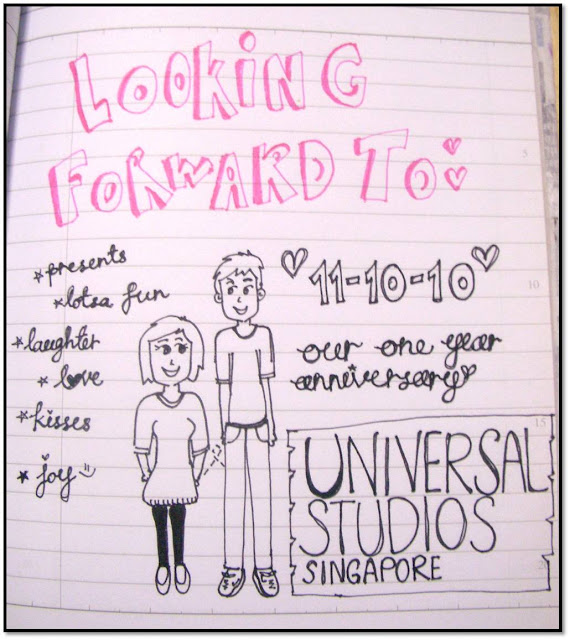 LOOKiNG
FORWARD TO
presents
lotsa fun
laughter
love
kisses
joy
11-10-10
our one year
anniversary
UNIVERSAL
STUDIOS
SINGAPORE
5
10
15